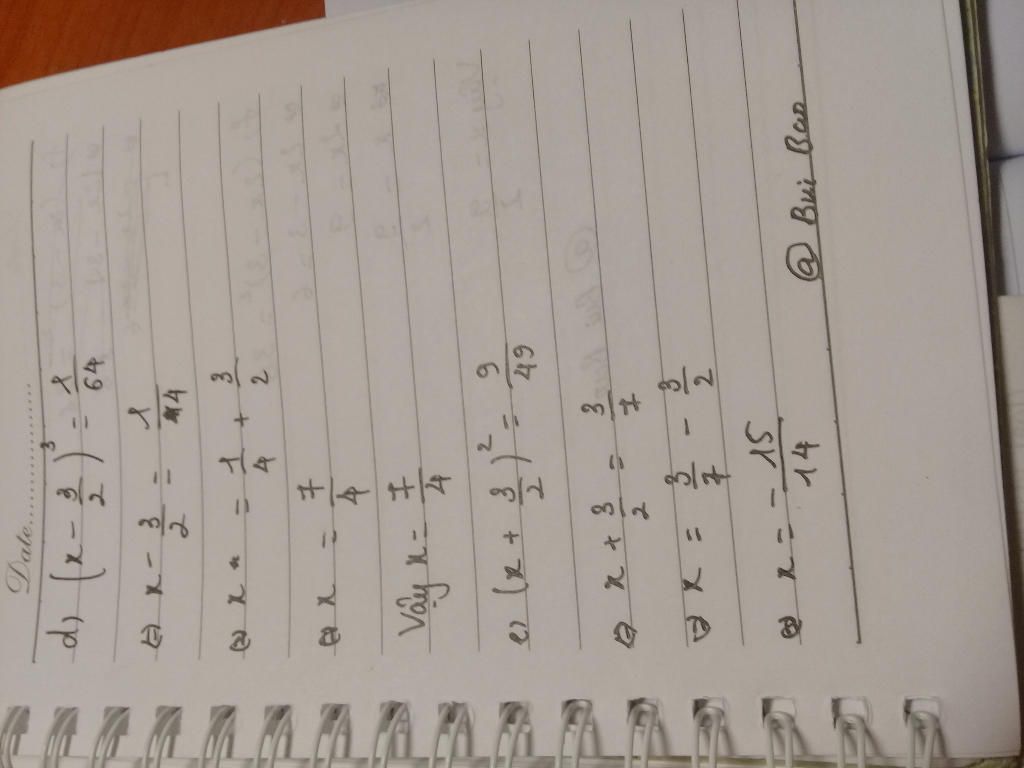 Date..................
d) (x - 3/2)³ = 1/64
⇔ x - 3/2 = 1/4
⇔ x = 1/4 + 3/2
⇔ x = 7/4
Vậy x = 7/4
e) (x + 3/2)² = 9/49
⇔ x + 3/2 = 3/7
⇔ x = 3/7 - 3/2
⇔ x = -15/14
@ Bui Bao